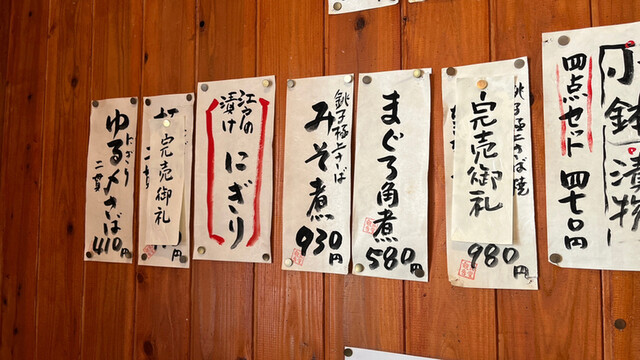 小鉢 漬物
四点セット 四七〇円
銚子極上さば焼
完売御礼
980円
まぐろ角煮
580円
銚子極上さば
みそ煮
930円
江戸の
漬け
にぎり
完売御礼
二貫
円
にぎり
ゆる〆さば
二貫
410円